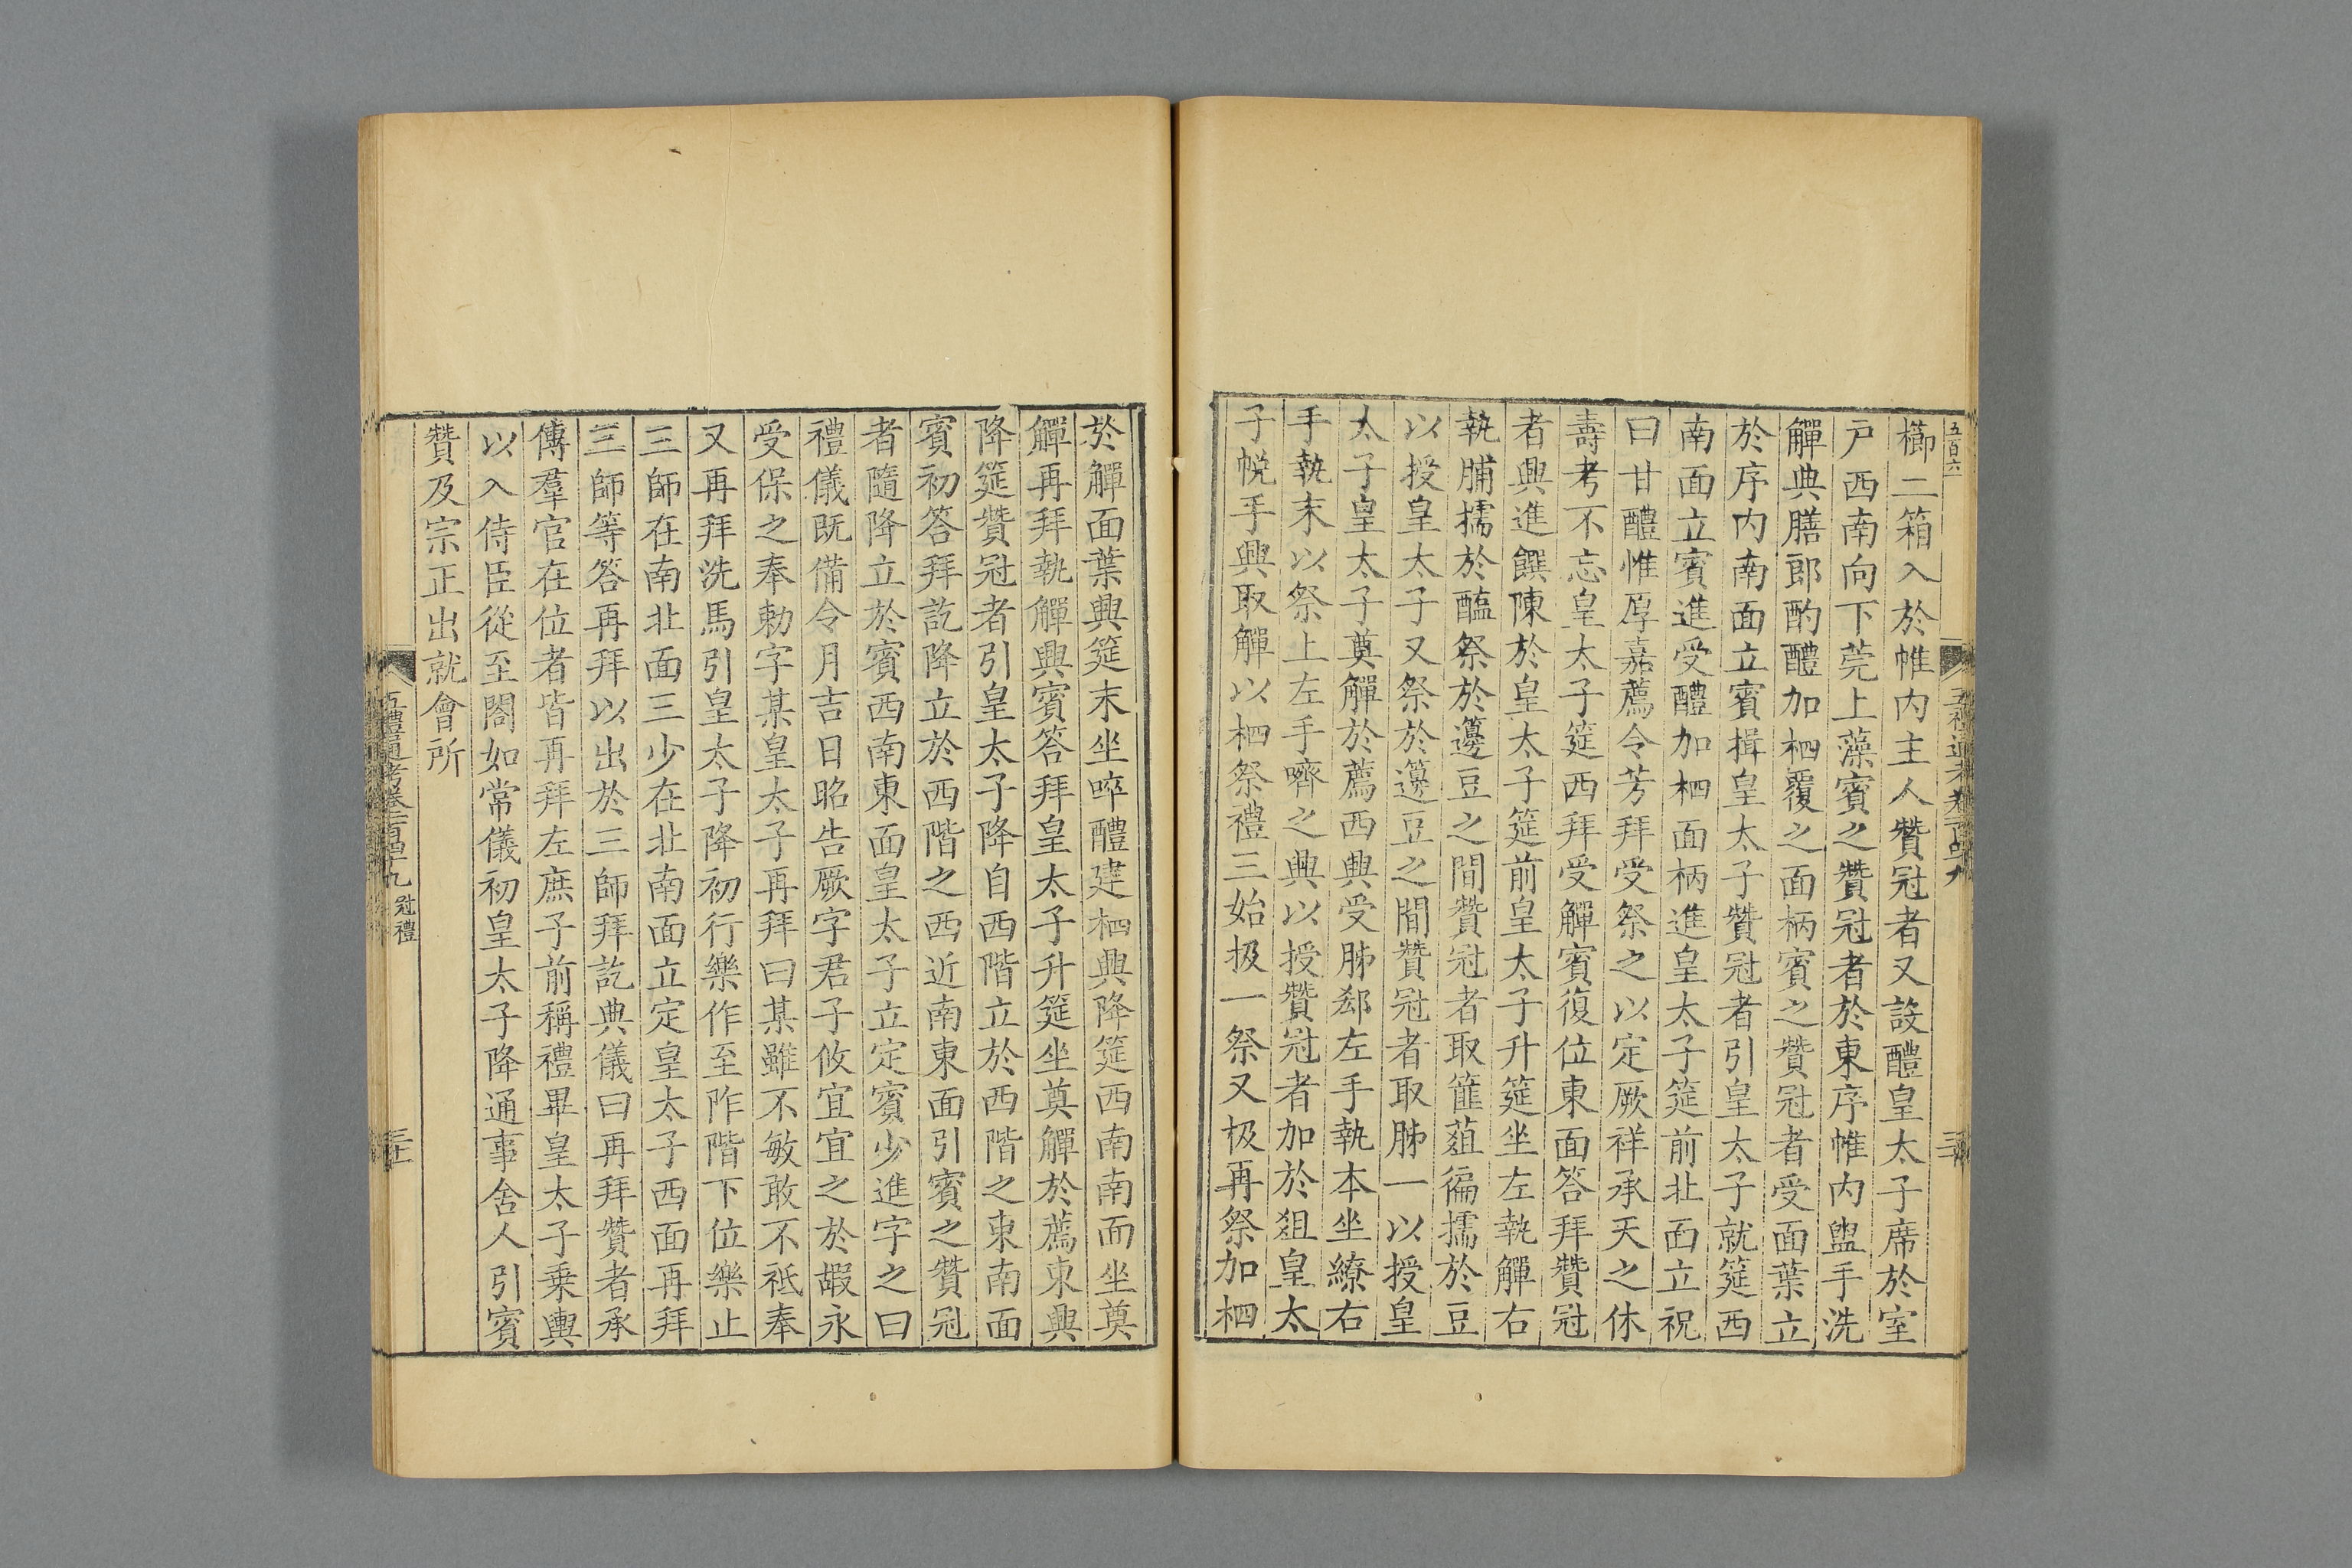 五百六
櫛二箱入於帷内主人贊冠者又設醴皇太子席於室
戸西南向下莞上藻賓之贊冠者於東序帷内盥手洗
觶典膳郎酌醴加柶覆之面柄賓之贊冠者受面葉立
於序内南面立賓揖皇太子贊冠者引皇太子就筵西
南面立賓進受醴加柶面柄進皇太子筵前北面立祝
曰甘醴惟厚嘉薦令芳拜受祭之以定厥祥承天之休
壽考不忘皇太子筵西拜受觶賓復位東面答拜贊冠
者興進饌陳於皇太子筵前皇太子升筵坐左執觶右
執脯擩於醢祭於籩豆之間贊冠者取韭菹徧擩於豆
以授皇太子又祭於籩豆之間贊冠者取胏一以授皇
太子皇太子奠觶於薦西興受胏郄左手執本坐繚右
手執末以祭上左手嚌之興以授贊冠者加於俎皇太
子帨手興取觶以柶祭禮三始扱一祭又扱再祭加柶
於觶面葉興筵末坐啐醴建柶興降筵西南南面坐奠
觶再拜執觶興賓答拜皇太子升筵坐奠觶於薦東興
降筵贊冠者引皇太子降自西階立於西階之東南面
賓初答拜訖降立於西階之西近南東面引賓之贊冠
者隨降立於賓西南東面皇太子立定賓少進字之曰
禮儀既備令月吉日昭告厥字君子攸宜宜之於嘏永
受保之奉勅字某皇太子再拜曰某雖不敏敢不祗奉
又再拜洗馬引皇太子降初行樂作至阼階下位樂止
三師在南北面三少在北南面立定皇太子西面再拜
三師等答再拜以出於三師拜訖典儀曰再拜贊者承
傳羣官在位者皆再拜左庶子前稱禮畢皇太子乗輿
以入侍臣從至閤如常儀初皇太子降通事舍人引賓
贊及宗正出就會所
五禮通考卷一百四十九 冠禮